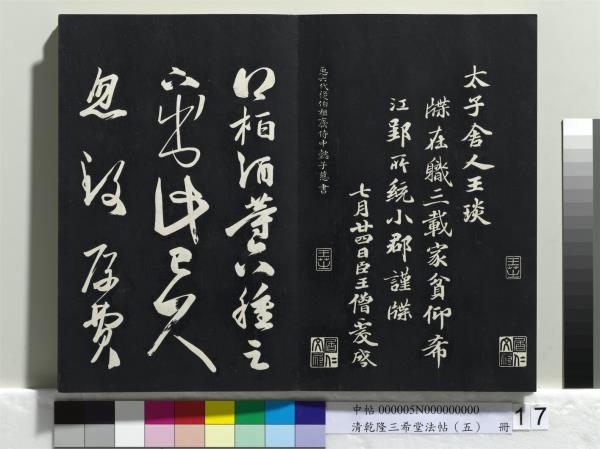 太子舍人王琰
牒在職三載家貧仰希
江郢所統小郡謹牒
七月廿四日臣王僧虔啓
六代從伯祖齊侍中懿子慈書
柏酒等六種足
下出此已久
忽致厚費
中帖 000005N000000000
清乾隆三希堂法帖(五) 冊
17